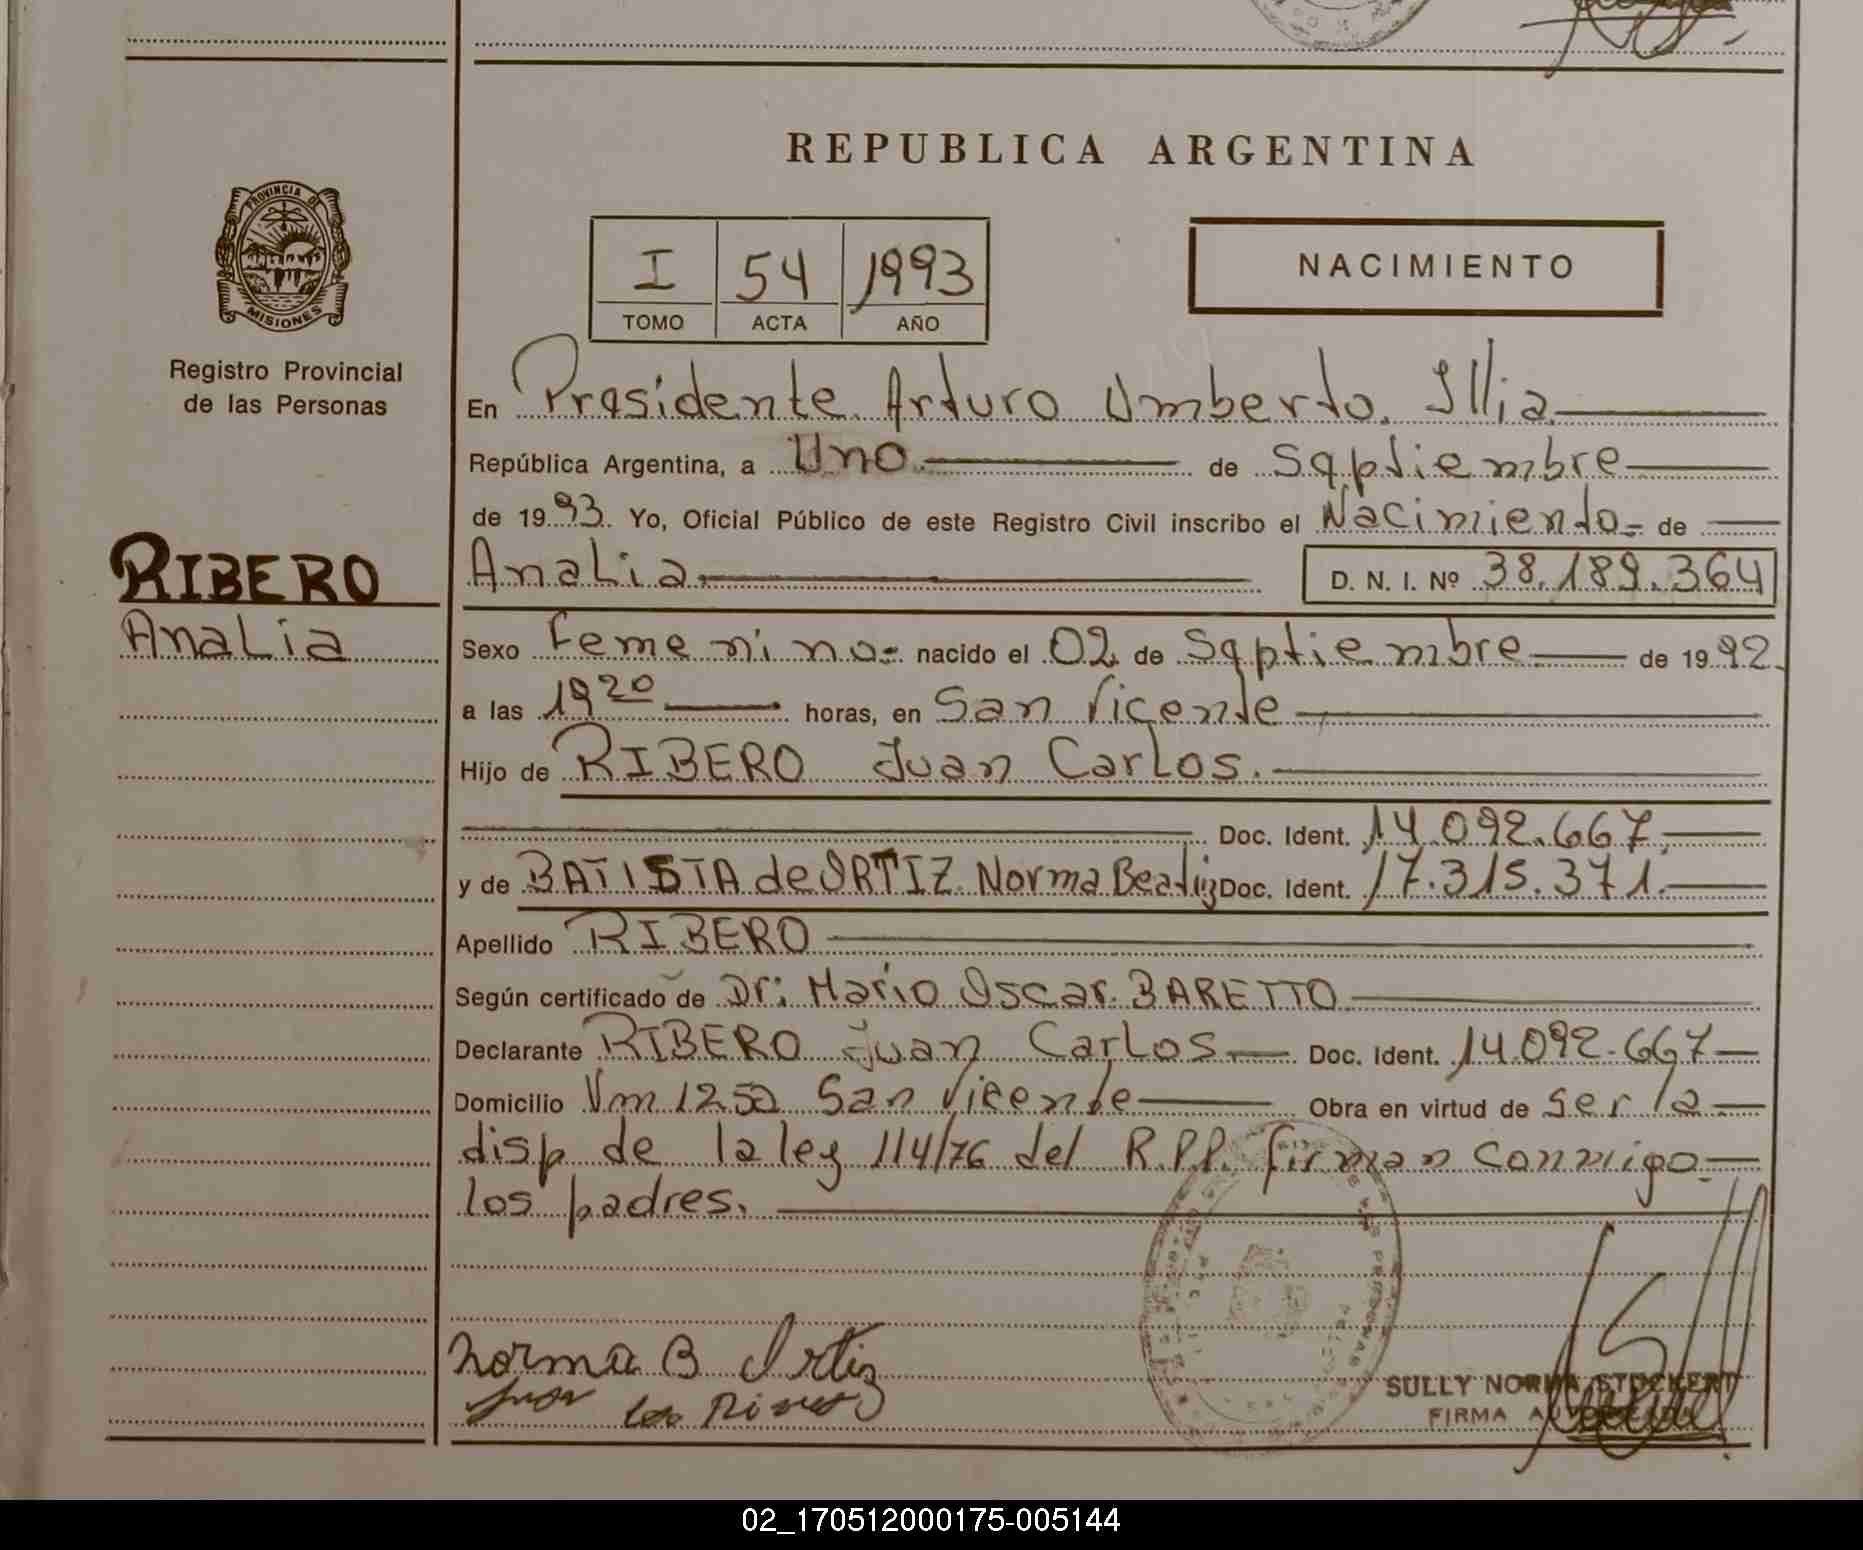 REPUBLICA ARGENTINA
PROVINCIA DE
MISIONES
Registro Provincial
de las Personas
RIBERO
Analia
I 54 1993
TOMO ACTA AÑO
NACIMIENTO
En Presidente Arturo Umberto. Illia
República Argentina, a Uno de Septiembre
de 1993. Yo, Oficial Público de este Registro Civil inscribo el Nacimiento= de
Analia D. N. I. Nº 38.189.364
Sexo Femenino= nacido el 02 de Septiembre de 1992.
a las 19 20 horas, en San Vicente
Hijo de RIBERO Juan Carlos.
Doc. Ident. 14.092.667.
y de BATISTA de ORTIZ Norma Beatriz Doc. Ident. 17.315.371.
Apellido RIBERO
Según certificado de Dr: Mario Oscar BARETTO
Declarante RIBERO Juan Carlos Doc. Ident. 14.092.667
Domicilio San Vicente Obra en virtud de ser la
disp de la ley 114/76 del R.P.P. firman conmigo
los padres.
Norma B Ortiz
SULLY NORMA STOCKERT
FIRMA
02_170512000175-005144